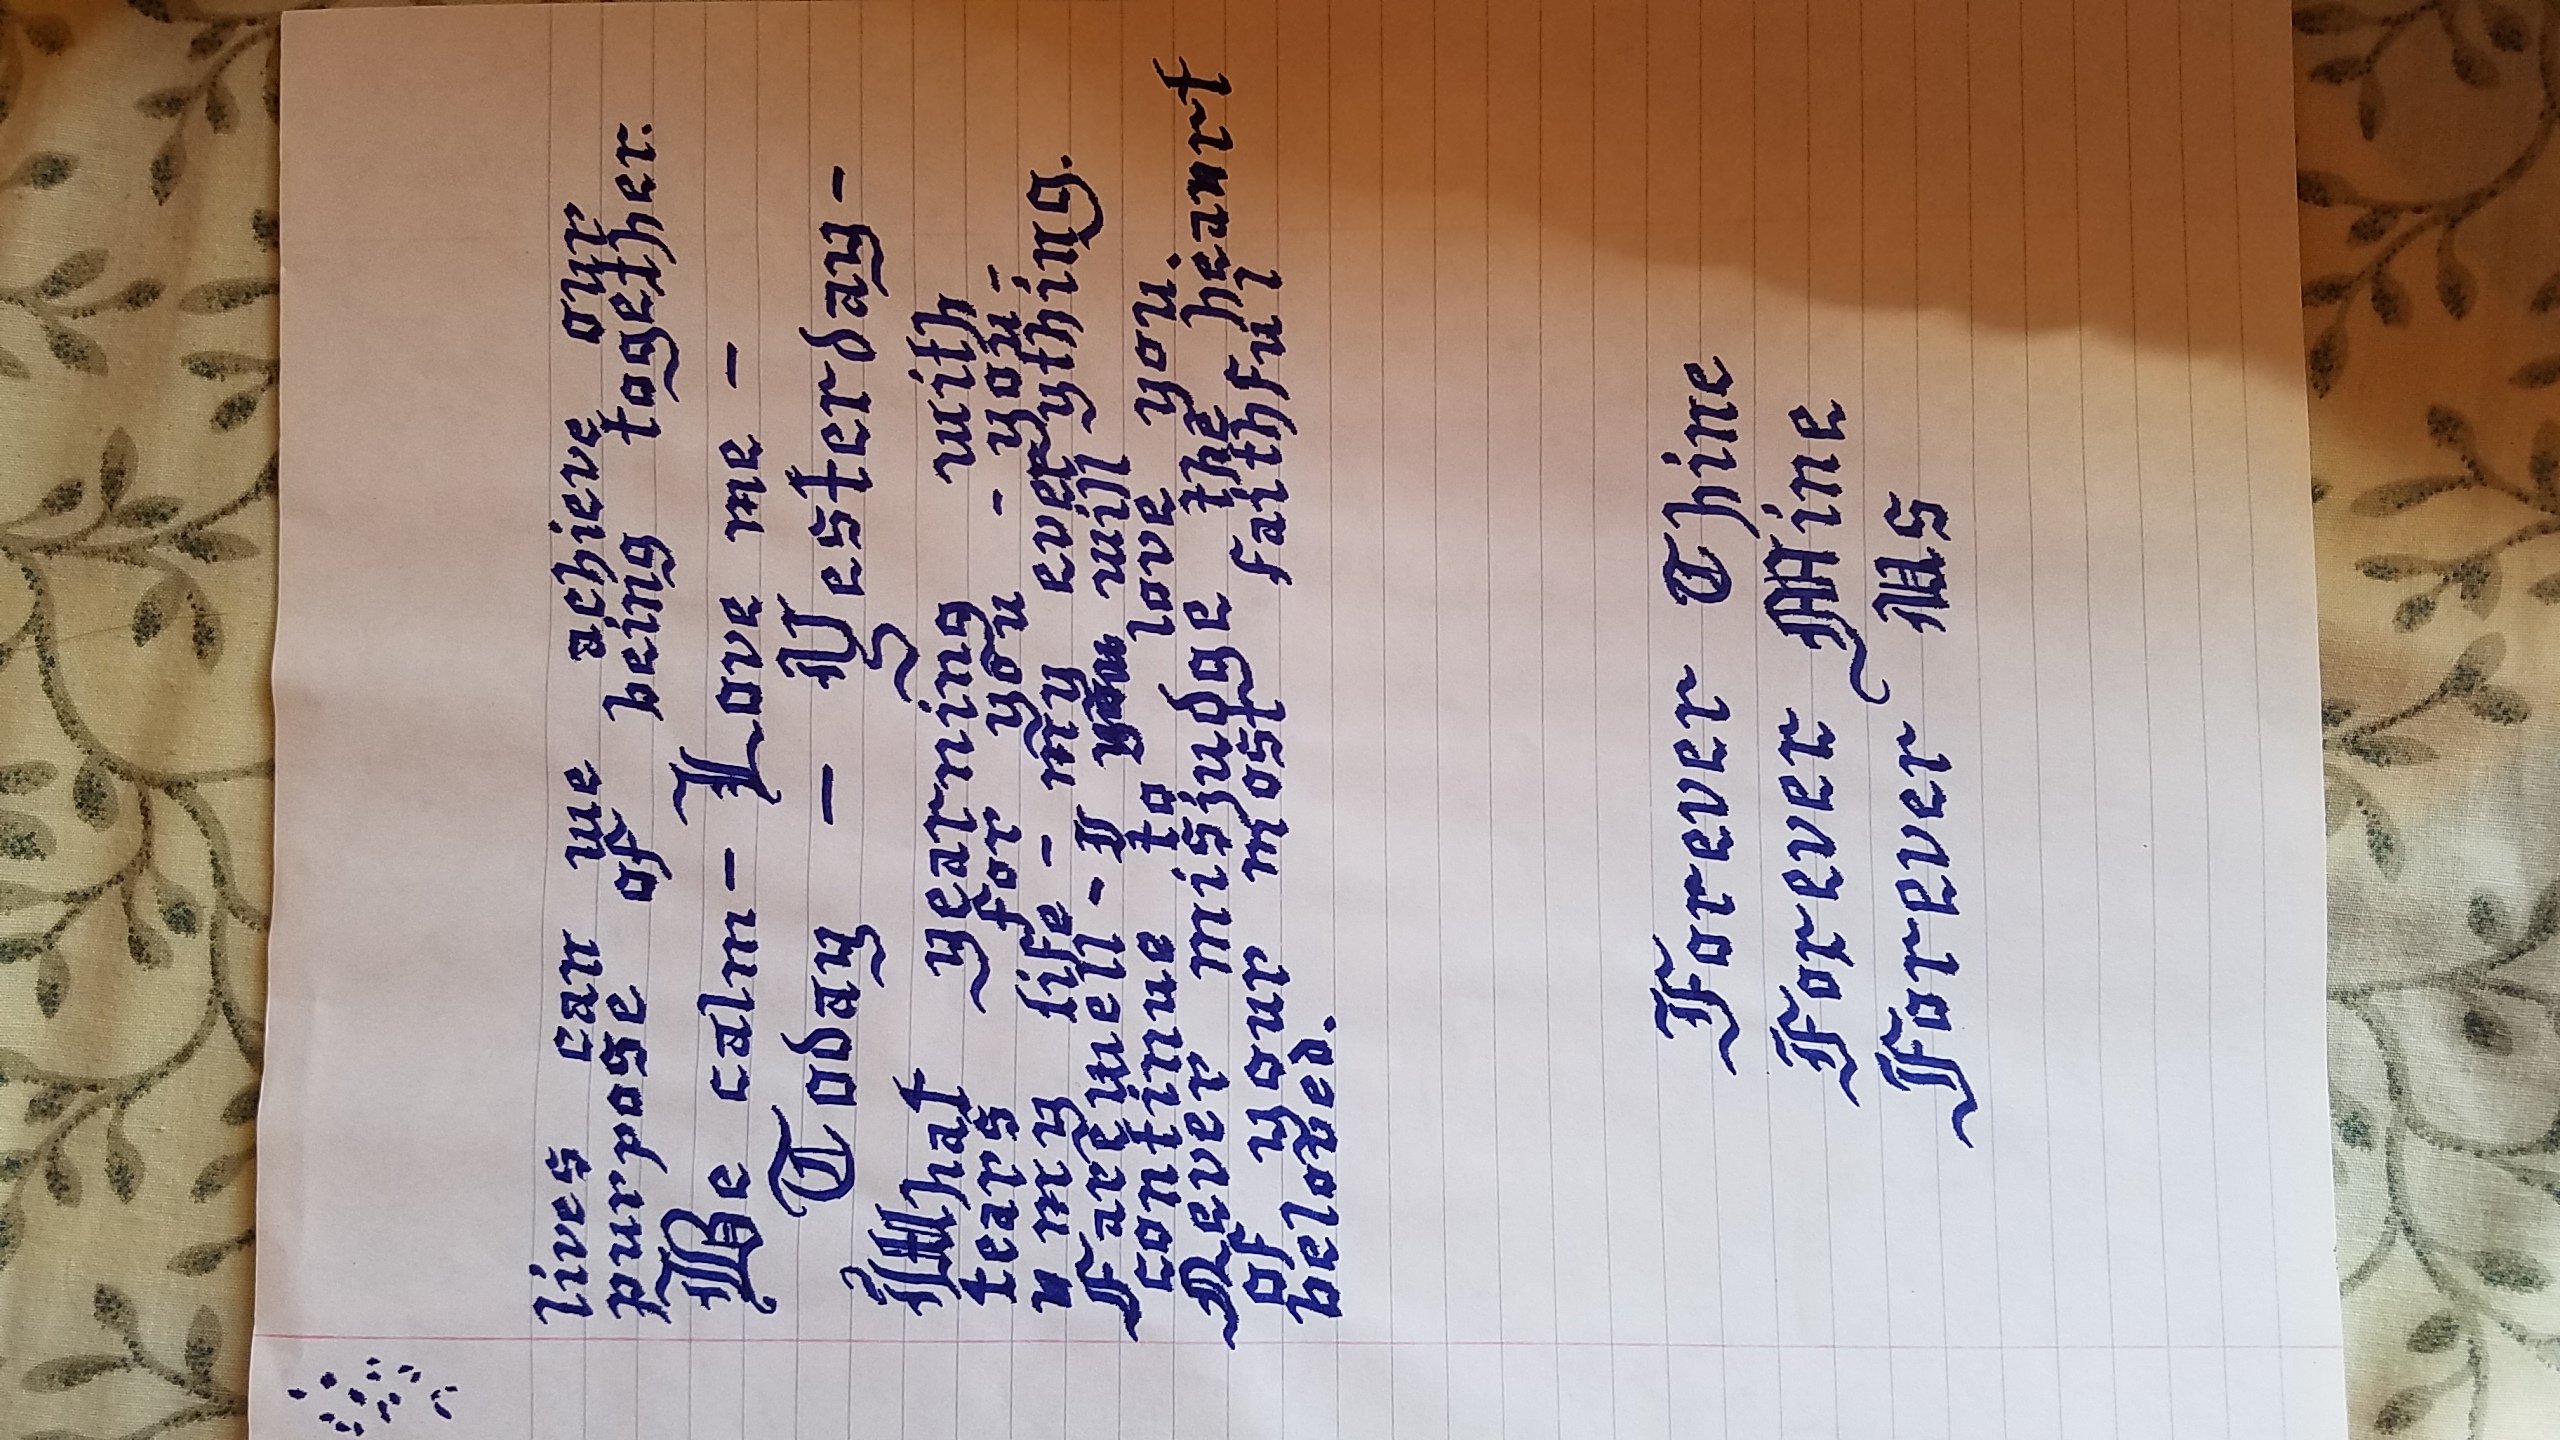 lives can we achieve our
purpose of being together.
Be calm - Love me -
Today - Yesterday -
What yearning with
tears for you - you -
my life - my everything.
Farewell - I will
continue to love you.
Never misjudge the heart
of your most faithful
beloved.
Forever Thine
Forever Mine
Forever Us